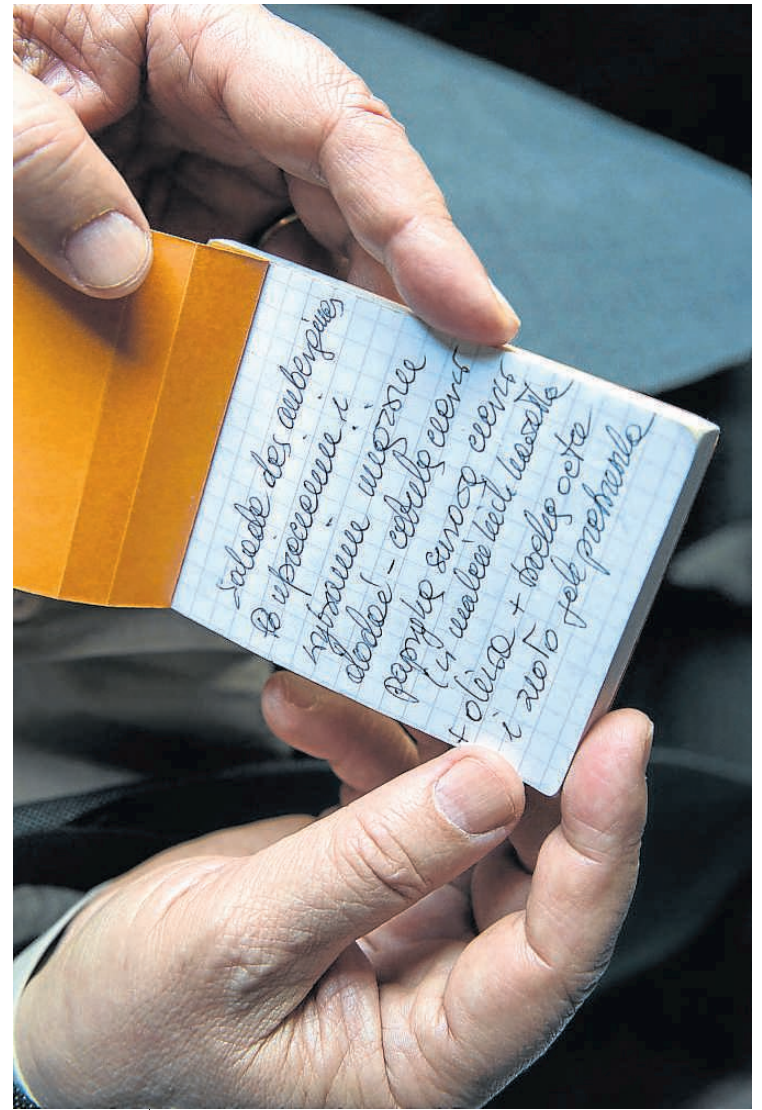 Salade des aubergines
Po upieczeniu i
wybraniu miąższu
dodać - cebulę czerw
paprykę surową czerw
(w maleńkich kostka
+ oliwa + trochę octu
i zioło jak pietruszka